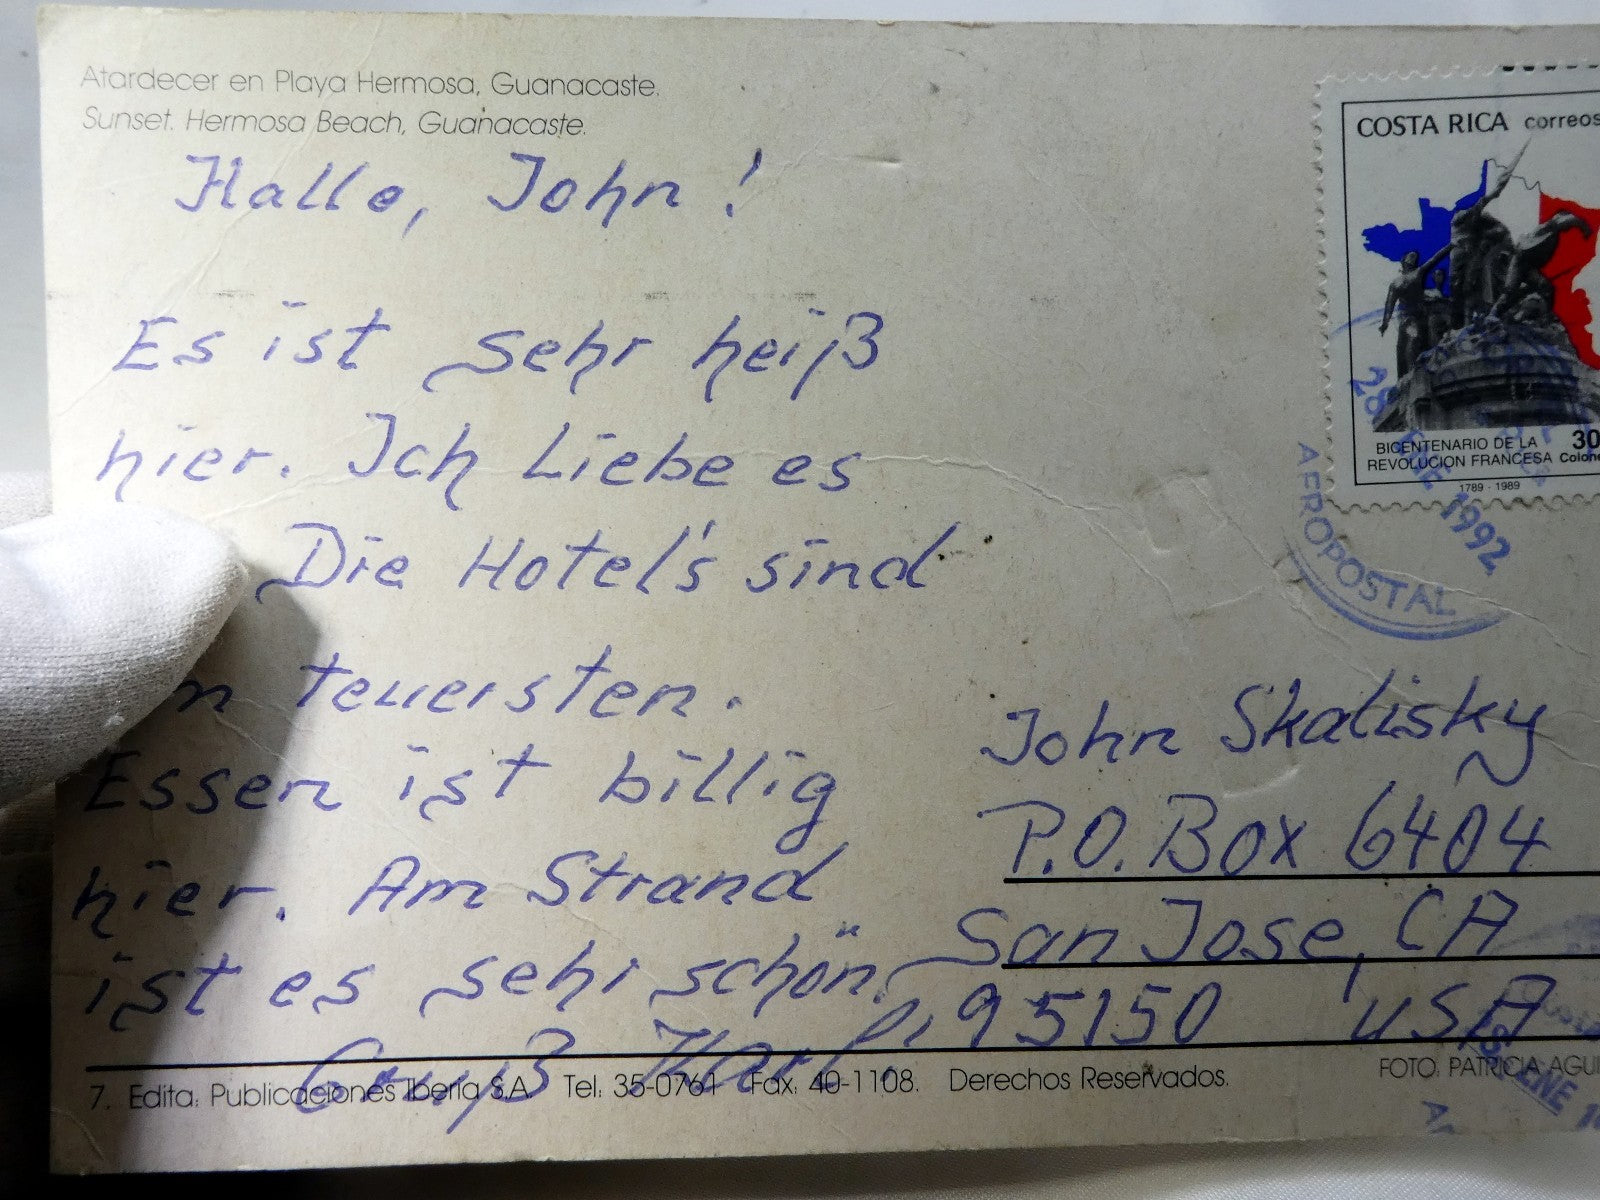 Atardecer en Playa Hermosa, Guanacaste.
Sunset. Hermosa Beach, Guanacaste.
Hallo, John!
Es ist sehr heiß
hier. Ich Liebe es
Die Hotel's sind
teuersten.
Essen ist billig
hier. Am Strand
ist es sehr schön.
Gruß Karl
COSTA RICA correos
BICENTENARIO DE LA
REVOLUCION FRANCESA
30
1789 - 1989
28 1992
AEROPOSTAL
John Skalisky
P.O. Box 6404
San Jose, CA
95150 USA
7. Edita: Publicaciones Iberia S.A. Tel: 35-0761 Fax: 40-1108. Derechos Reservados.
FOTO: PATRICIA
ENE